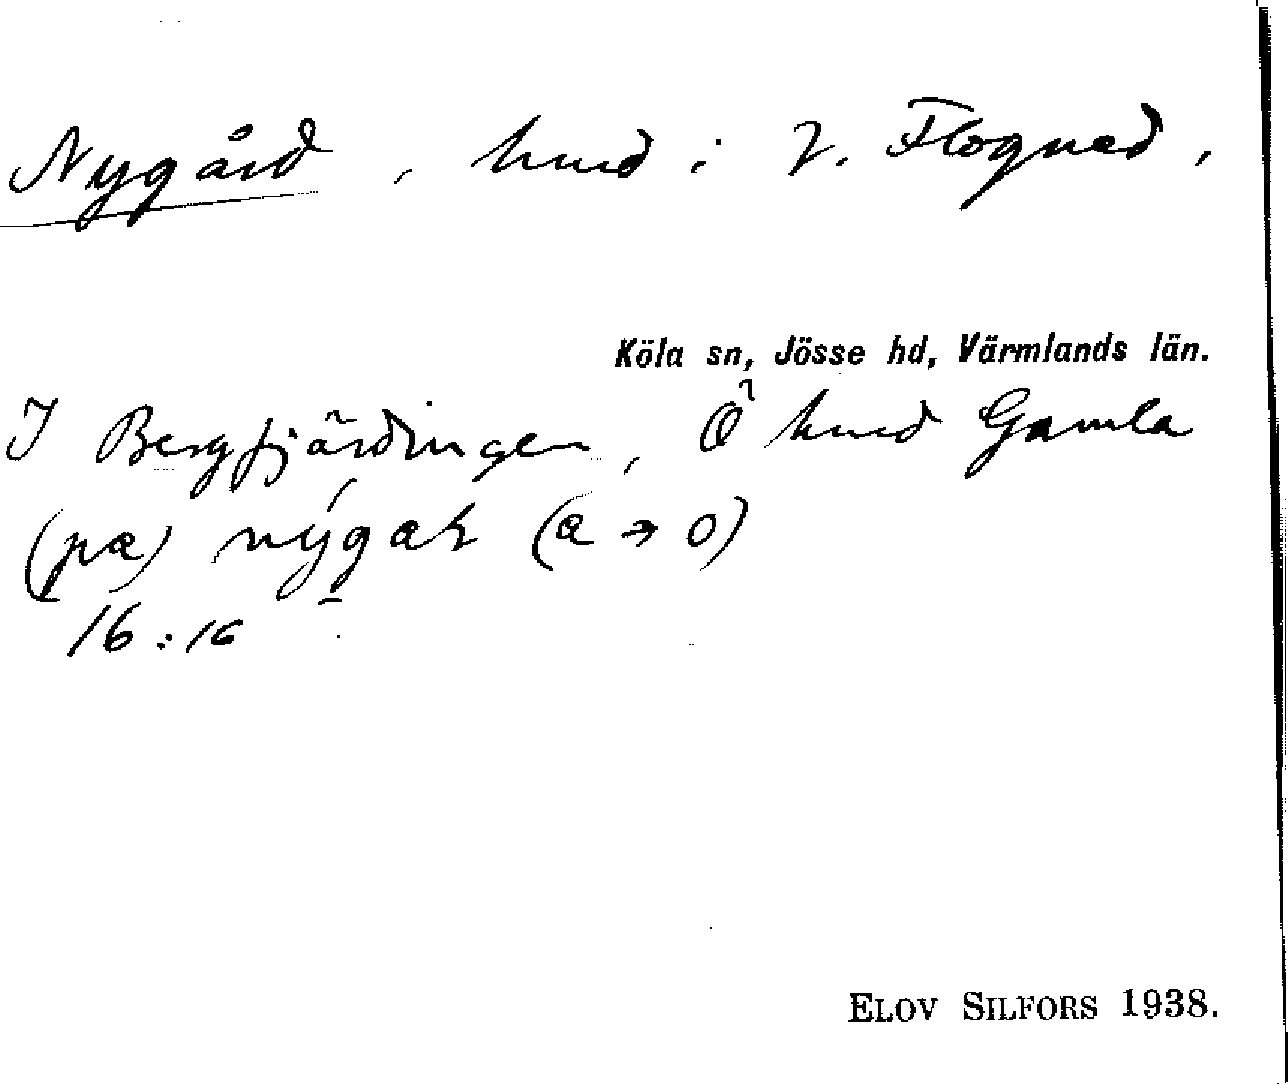 Nygård, hmd i V. Flogned,
Köla sn, Jösse hd, Värmlands län.
I Bergfjärdingen, Ö hmd Gamla
(pa) nýgaṟ (a → o)
16:16
ELOV SILFORS 1938.